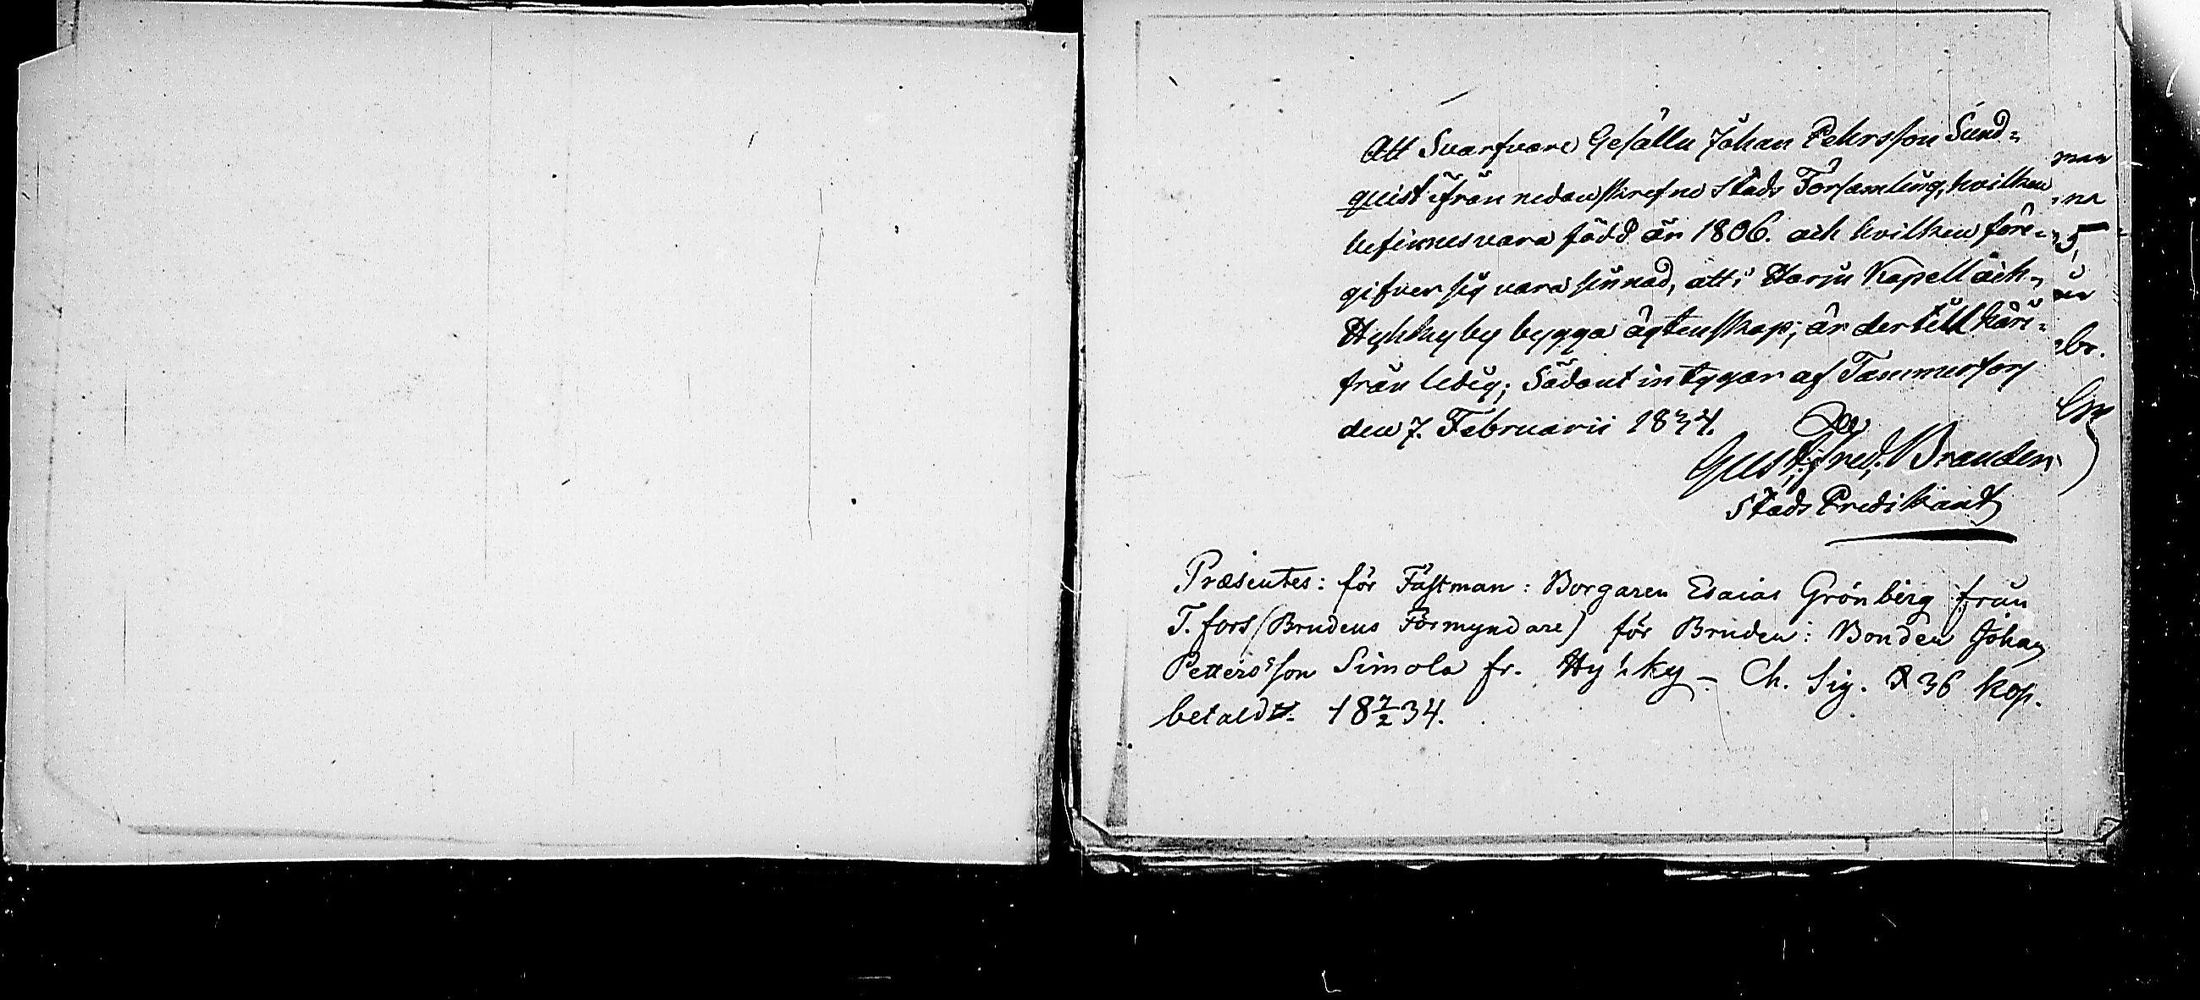 Att Svarfvare Gesällen Johan Pehrsson Sund=
quist ifrån nedanskrefne Stads Församling, hvilken
befinnes vara född år 1806. och hvilken före=
gifver sig vara sinnad, att i Harju Kapell och
Hyhky by bygga ägtenskap; är dertill häri=
från ledig; Sådant intygar af Tammerfors
den 7. Februarii 1834.
Gust. Fred. Brander
Stads Predikant
Præsentes: för Fästman: Borgaren Esaias Grönberg från
T.fors (Brudens Förmyndare) för Bruden: Bonden Johan
Petters'son Simola fr. Hyhky – Ch. Sig. R 36 kop.
betaldt. 18 7/2 34.